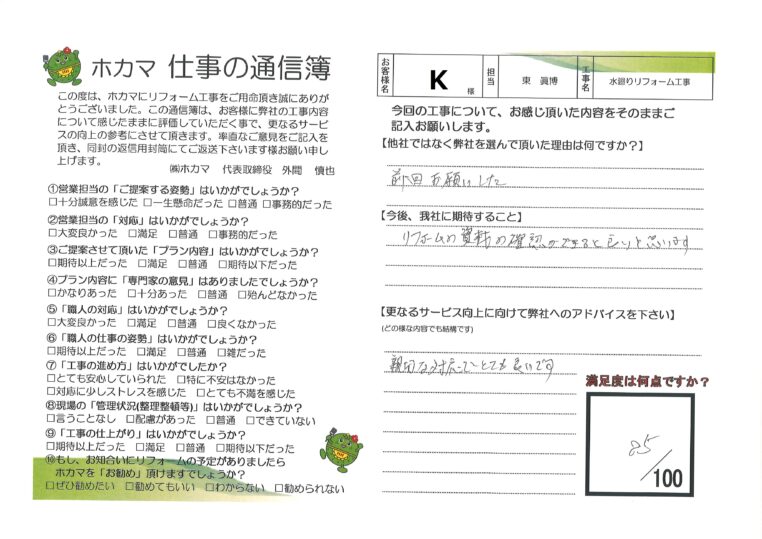 ホカマ 仕事の通信簿
この度は、ホカマにリフォーム工事をご用命頂き誠にありが
とうございました。この通信簿は、お客様に弊社の工事内容
について感じたままに評価していただく事で、更なるサービ
スの向上の参考にさせて頂きます。率直なご意見をご記入を
頂き、同封の返信用封筒にてご返送下さいます様お願い申し
上げます。
㈱ホカマ 代表取締役 外間 慎也
①営業担当の「ご提案する姿勢」はいかがでしょうか?
□十分誠意を感じた □一生懸命だった □普通 □事務的だった
②営業担当の「対応」はいかがでしょうか?
□大変良かった □満足 □普通 □事務的だった
③ご提案させて頂いた「プラン内容」はいかがでしょうか?
□期待以上だった □満足 □普通 □期待以下だった
④プラン内容に「専門家の意見」はありましたでしょうか?
□かなりあった □十分あった □普通 □殆んどなかった
⑤「職人の対応」はいかがでしょうか?
□大変良かった □満足 □普通 □良くなかった
⑥「職人の仕事の姿勢」はいかがでしょうか?
□期待以上だった □満足 □普通 □雑だった
⑦「工事の進め方」はいかがでしたか?
□とても安心していられた □特に不安はなかった
□対応に少しストレスを感じた □とても不満を感じた
⑧現場の「管理状況(整理整頓等)」はいかがでしょうか?
□言うことなし □配慮があった □普通 □できていない
⑨「工事の仕上がり」はいかがでしょうか?
□期待以上だった □満足 □普通 □期待以下だった
⑩もし、お知合いにリフォームの予定がありましたら
ホカマを「お勧め」頂けますでしょうか?
□ぜひ勧めたい □勧めてもいい □わからない □勧められない
お客様名 K 様 担当 東 眞博 工事名 水廻りリフォーム工事
今回の工事について、お感じ頂いた内容をそのままご
記入お願いします。
【他社ではなく弊社を選んで頂いた理由は何ですか?】
前回お願いした
【今後、我社に期待すること】
リフォームの資料の確認ができると良いと思います
【更なるサービス向上に向けて弊社へのアドバイスを下さい】
(どの様な内容でも結構です)
親切な対応でとても良いです
満足度は何点ですか?
85
/100